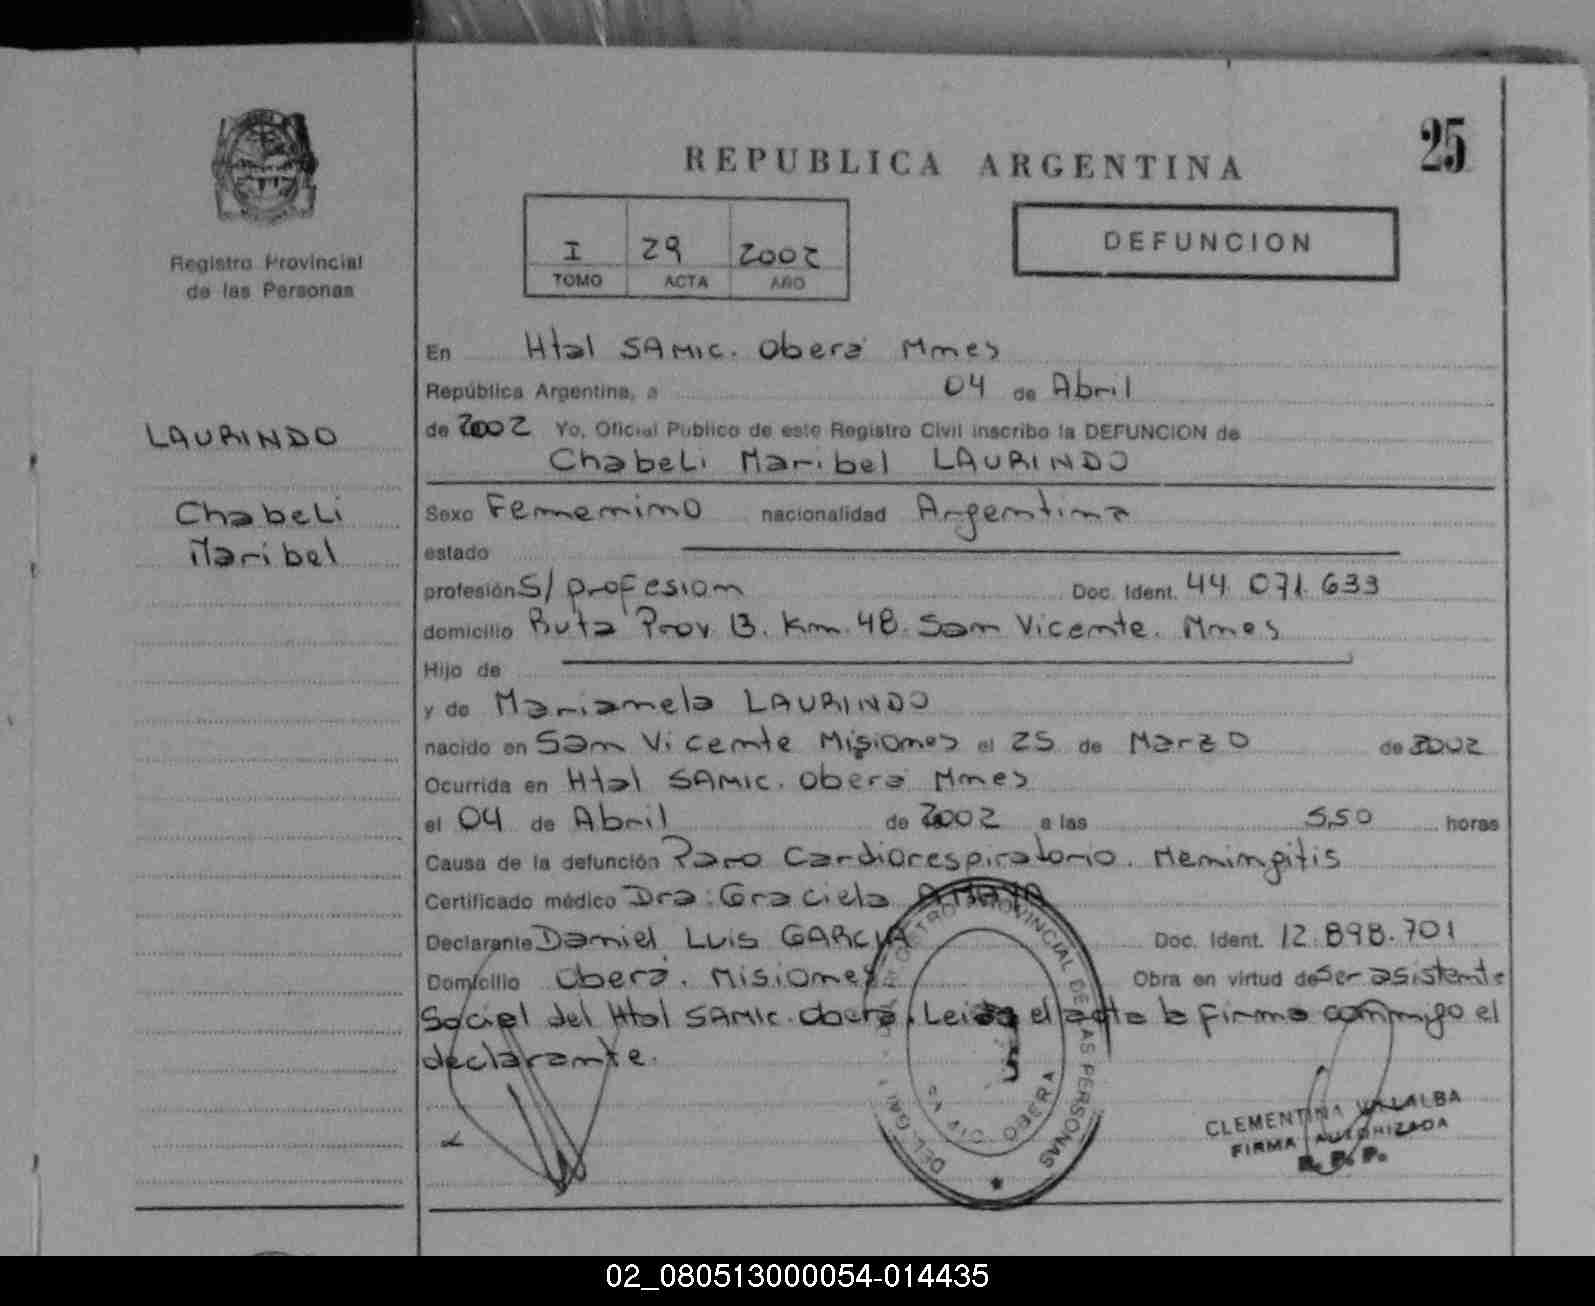 REPUBLICA ARGENTINA
25
Registro Provincial
de las Personas
I 29 2002
TOMO ACTA AÑO
DEFUNCION
LAURINDO
Chabeli
Maribel
En Htal SAMIC. Oberá Mnes
República Argentina, a 04 de Abril
de 2002 Yo, Oficial Público de este Registro Civil inscribo la DEFUNCION de
Chabeli Maribel LAURINDO
Sexo Femenino nacionalidad Argentina
estado
profesión S/ profesion Doc. Ident. 44.071.633
domicilio Ruta Prov. 13. Km. 48. San Vicente. Mnes
Hijo de
y de Marianela LAURINDO
nacido en San Vicente Misiones el 25 de Marzo de 2002
Ocurrida en Htal SAMIC. Oberá Mnes
el 04 de Abril de 2002 a las 5,50 horas
Causa de la defunción Paro Cardiorespiratorio. Meningitis
Certificado médico Dra: Graciela AMAYA
Declarante Daniel Luis GARCIA Doc. Ident. 12.898.701
Domicilio Oberá. Misiones Obra en virtud de Ser asistente
Social del Htal SAMIC. Oberá. Leida el acta la firma conmigo el
declarante.
REGISTRO PROVINCIAL DE LAS PERSONAS
OBERA
CLEMENTINA VILLALBA
FIRMA AUTORIZADA
R. P. P.
02_080513000054-014435